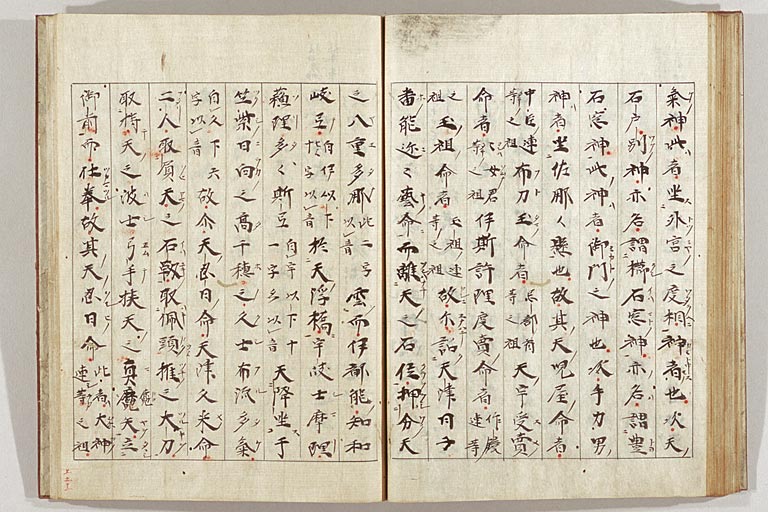 氣神此者坐外宮之度相神者也次天
石戸別神亦名謂櫛石窓神亦名謂豊
石窓神此神者御門之神也次手力男
神者坐佐那々縣也故其天児屋命者
中臣連等之祖布刀玉命者忌部首等之祖天宇受賣
命者猨女君等之祖伊斯許理度賣命者作鏡連等
之祖玉祖命者玉祖連等之祖故尓詔天津日子
番能迩々藝命而離天之石位押分天
之八重多那此二字以音雲而伊都能知和
岐弖自伊以下十字以音於天浮橋宇岐士摩理
蘓理多々斯弖自宇以下十一字亦以音天降坐于
竺紫日向之高千穂之久士布流多氣
自久以下六字以音故尓天忍日命天津久米命
二人取負天之石靫取佩頭椎之大刀
取持天之波士弓手挟天之真鹿兒矢立
御前而仕奉故其天忍日命此者大神連等之祖